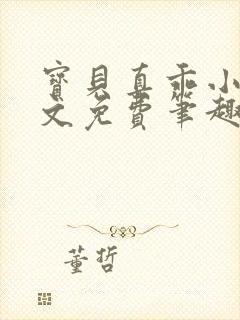 寶貝真乖小
文免費筆趣
董哲